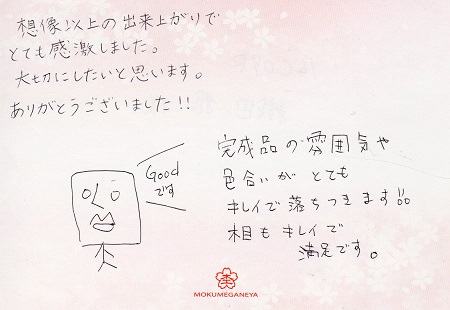 想像以上の出来上がりで
とても感激しました。
大切にしたいと思います。
ありがとうございました!!
Good
です
完成品の雰囲気や
色合いが とても
キレイで落ちつきます!!
木目もキレイで
満足です。
MOKUMEGANEYA